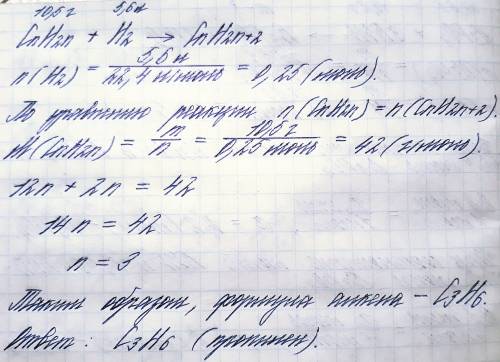 10,5 г 5,6 л
CnH2n + H2 → CnH2n+2
n(H2) = 5,6 л / 22,4 л/моль = 0,25 (моль).
По уравнению реакции n(CnH2n) = n(CnH2n+2).
M(CnH2n) = m/n = 10,5 г / 0,25 моль = 42 (г/моль).
12n + 2n = 42
14n = 42
n = 3
Таким образом, формула алкена – C3H6.
Ответ: C3H6 (пропилен).